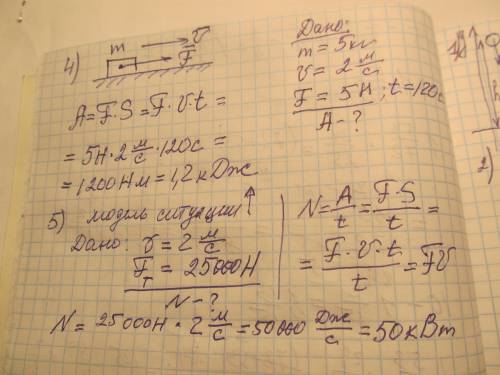 4) m v F
Дано:
m = 5кг
v = 2 м/с
F = 5Н; t = 120с
A - ?
A = F·S = F·v·t =
= 5Н · 2 м/с · 120с =
= 1200Нм = 1,2 кДж
5) модель ситуации ↑
Дано: v = 2 м/с
Fт = 25000Н
N - ?
N = A/t = F·S/t =
= F·v·t/t = Fv
N = 25000Н · 2 м/с = 50000 Дж/с = 50кВт
2)